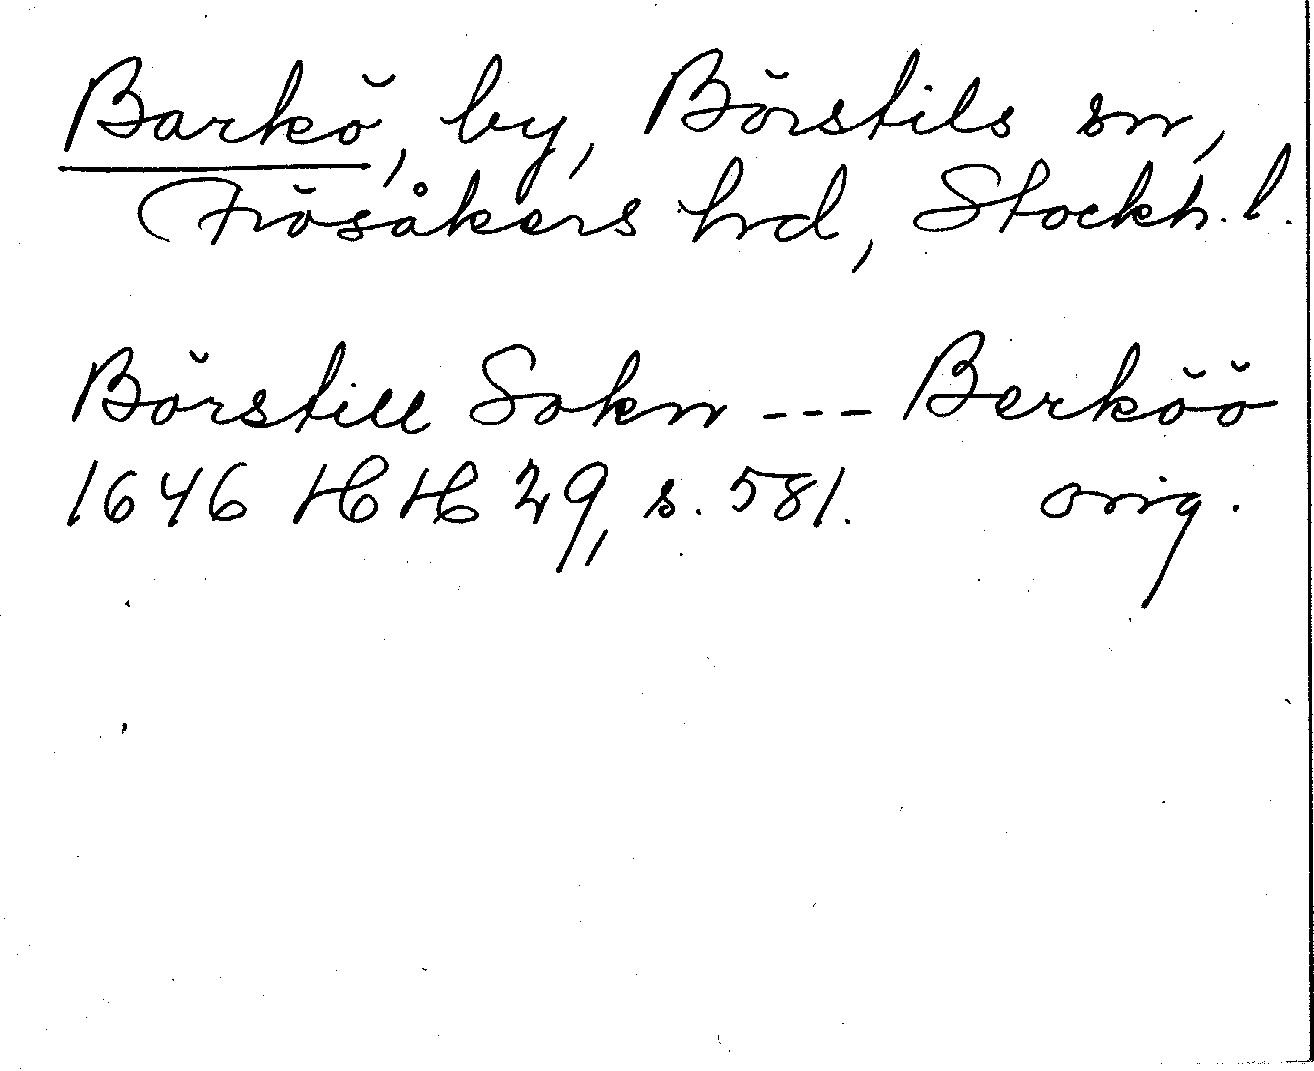 Barkö, by, Börstils sn,
Frösåkers hrd, Stockh. l.
Börstill Sokn --- Berköö
1646 HH 29, s. 581. orig.